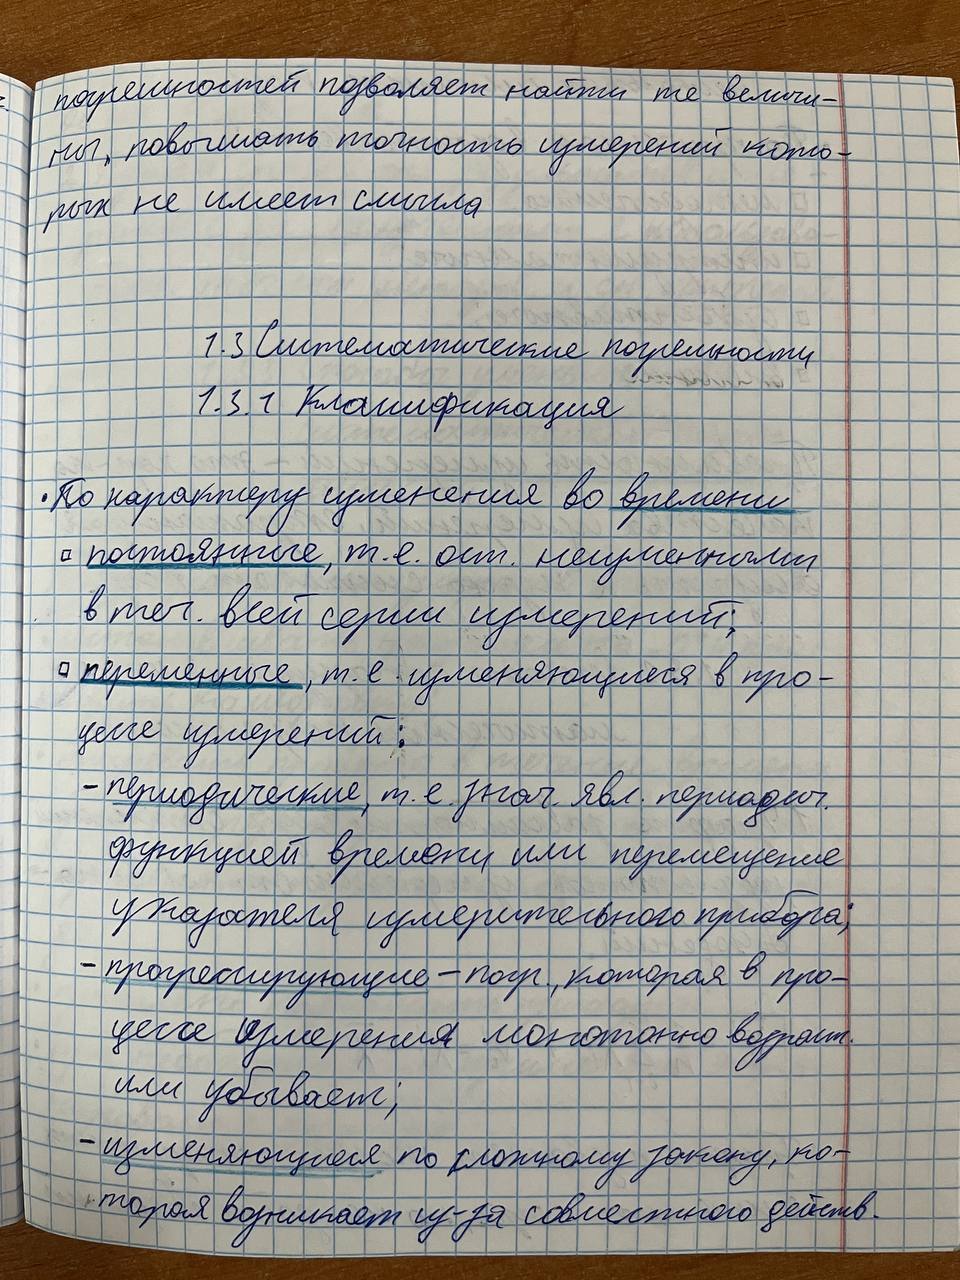 погрешностей позволяет найти те величи-
ны, повышать точность измерений кото-
рых не имеет смысла
1.3 Систематические погрешности
1.3.1 Классификация
• По характеру изменения во времени
▫ постоянные, т.е. ост. неизменными
в теч. всей серии измерений;
▫ переменные, т.е. изменяющиеся в про-
цессе измерений:
- периодические, т.е. знач. явл. периодич.
функцией времени или перемещение
указателя измерительного прибора;
- прогрессирующие - погр., которая в про-
цессе измерения монотонно возраст.
или убывает;
- изменяющиеся по сложному закону, ко-
торая возникает из-за совместного действ.